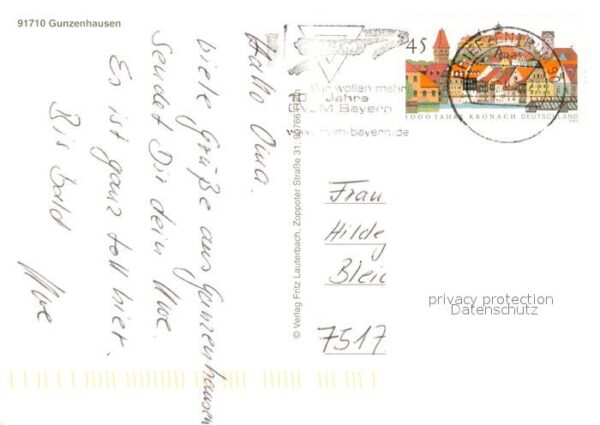 91710 Gunzenhausen
Hallo Oma.
viele Grüße aus Gunzenhausen
Sendet Dir dein Uwe.
Es ist ganz toll hier.
Bis Bald
Uwe
© Verlag Fritz Lauterbach, Zoppoter Straße 31, 90766
Wir wollen mehr
Jahre
Bayern
45
1000 JAHRE KRONACH DEUTSCHLAND
BRIEFZENTRUM
Frau
Hilde
7517
privacy protection
Datenschutz